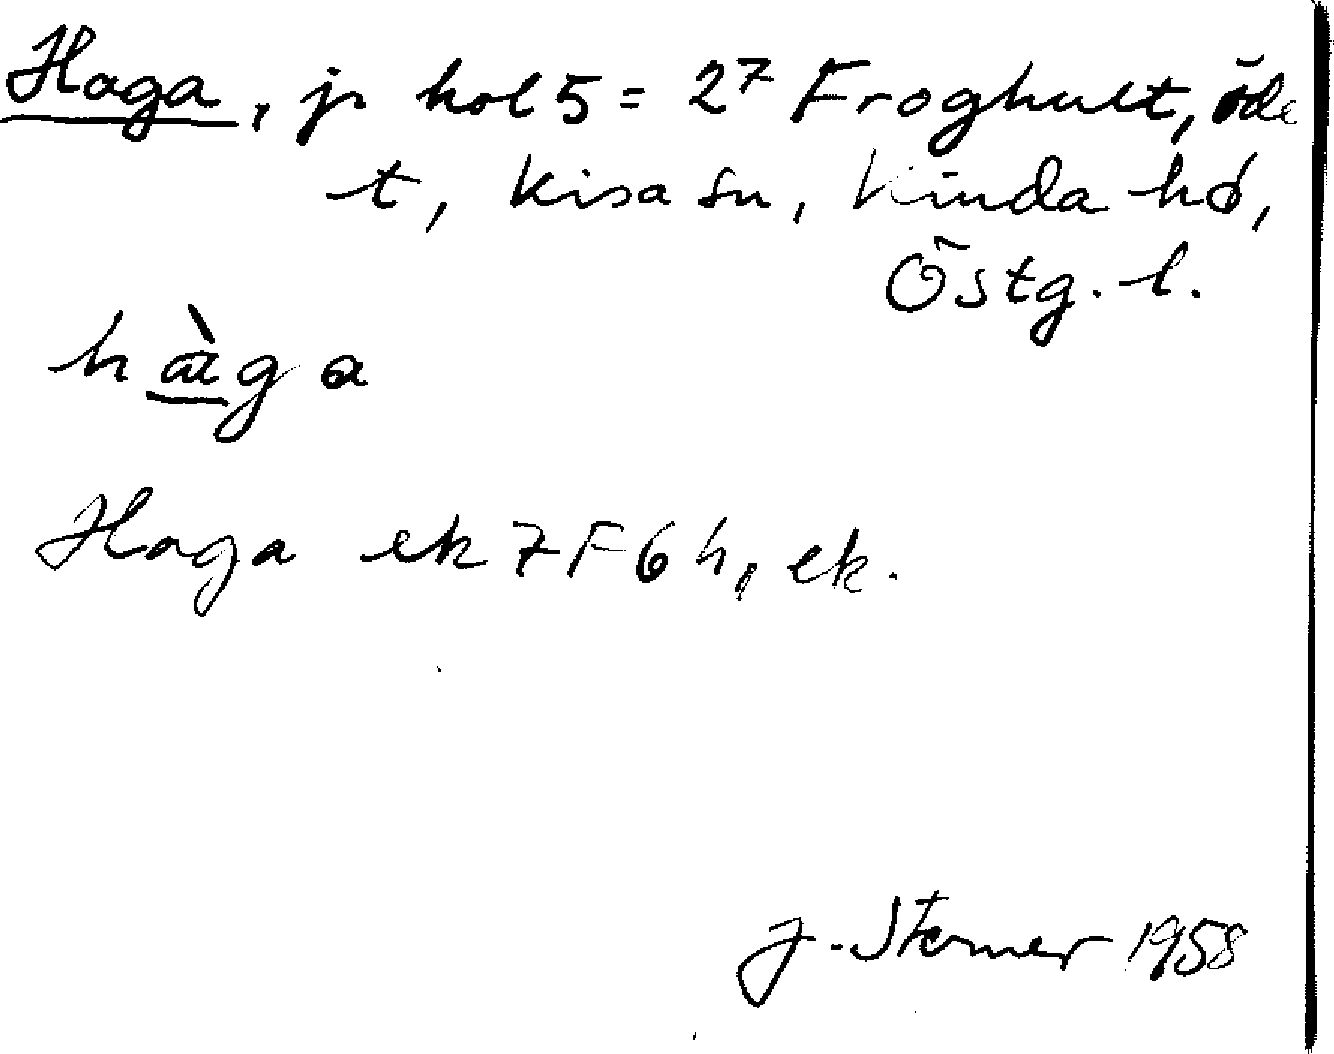 Haga, jr kol 5 = 2⁷ Froghult, öde
t, Kisa sn, Kinda hd,
Östg. l.
hàga
Haga ek 7F6h, ek.
J. Sterner 1958